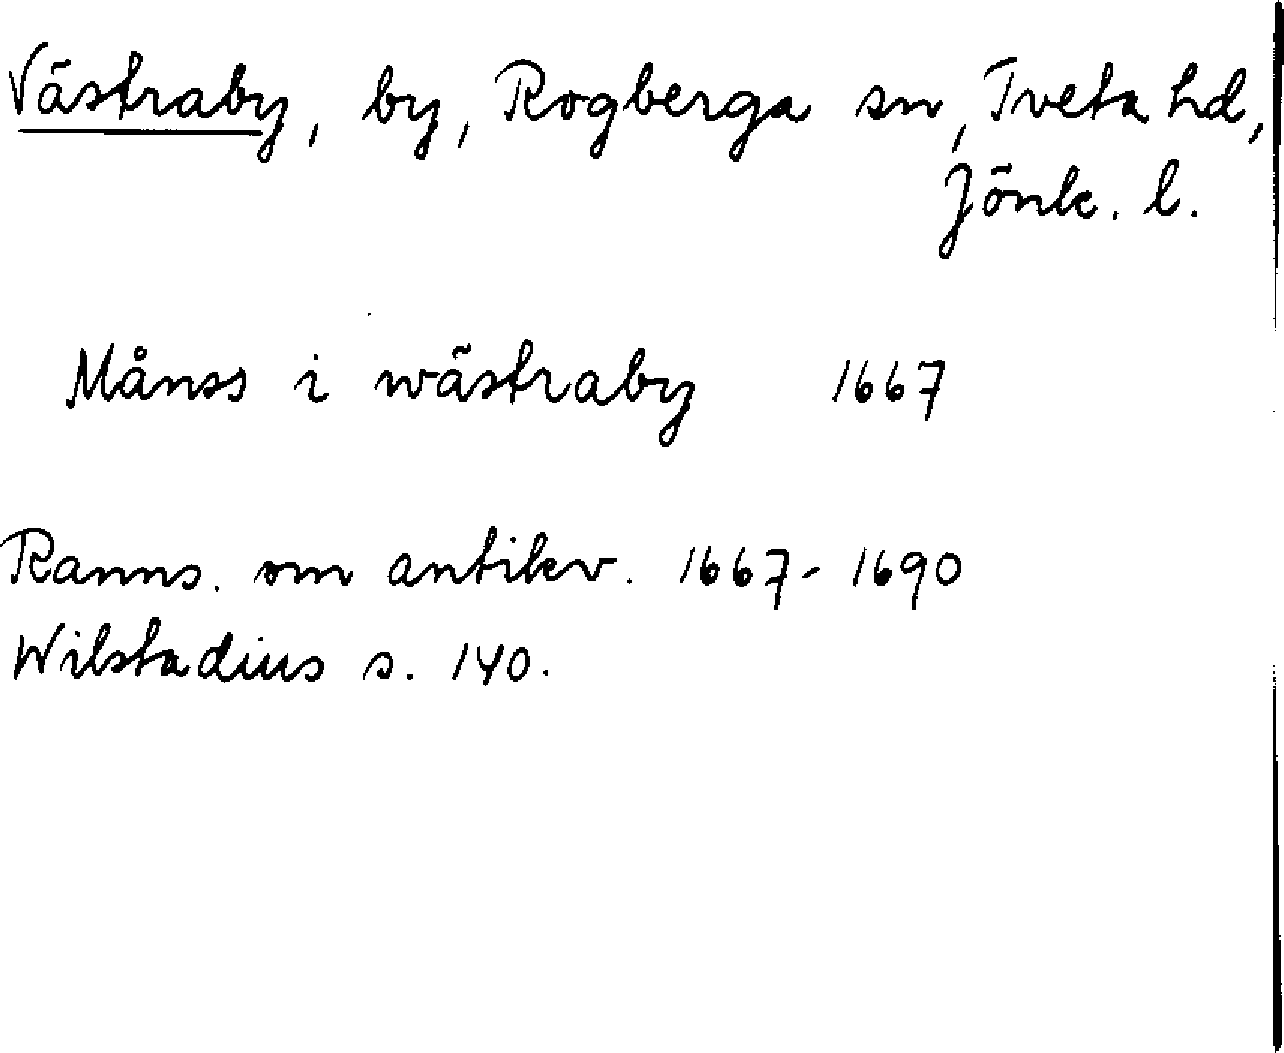 Västraby, by, Rogberga sn, Tveta hd,
Jönk. l.
Månss i wästraby 1667
Ranns. om antikv. 1667-1690
Wilstadius s. 140.